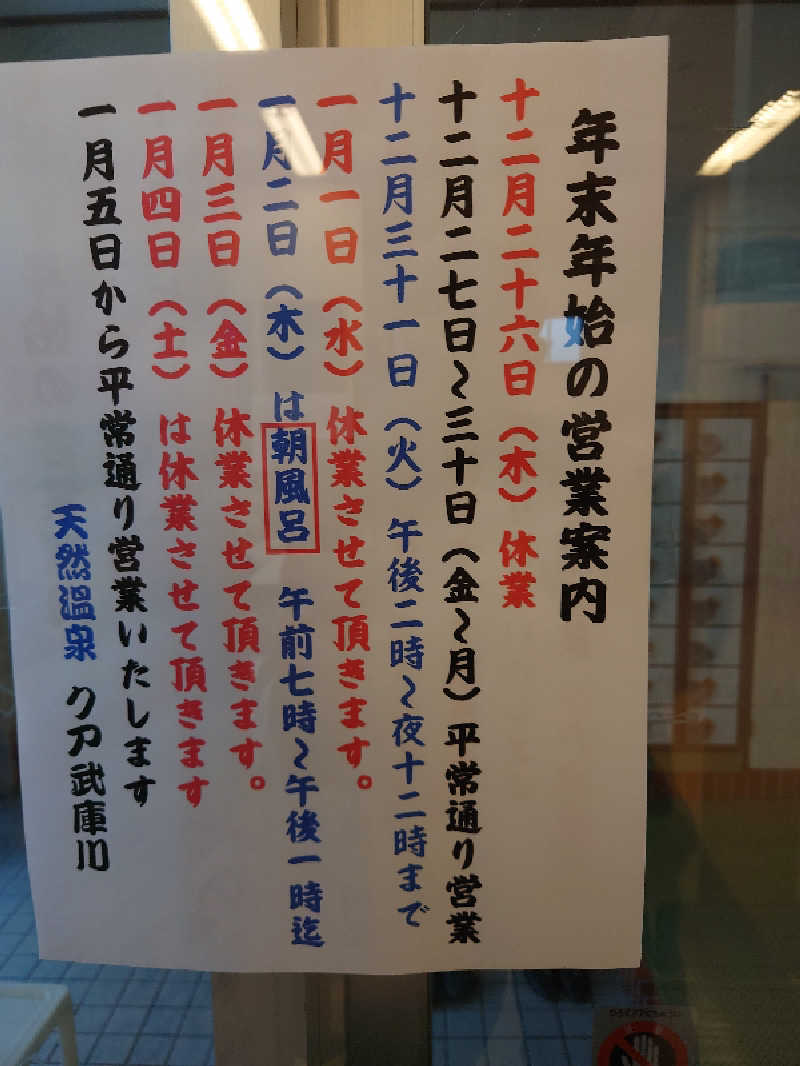 年末年始の営業案内
十二月二十六日（木）休業
十二月二七日～三十日（金～月）平常通り営業
十二月三十一日（火）午後二時～夜十二時まで
一月一日（水）休業させて頂きます。
一月二日（木）は朝風呂 午前七時～午後一時迄
一月三日（金）休業させて頂きます。
一月四日（土）は休業させて頂きます
一月五日から平常通り営業いたします
天然温泉 クア武庫川